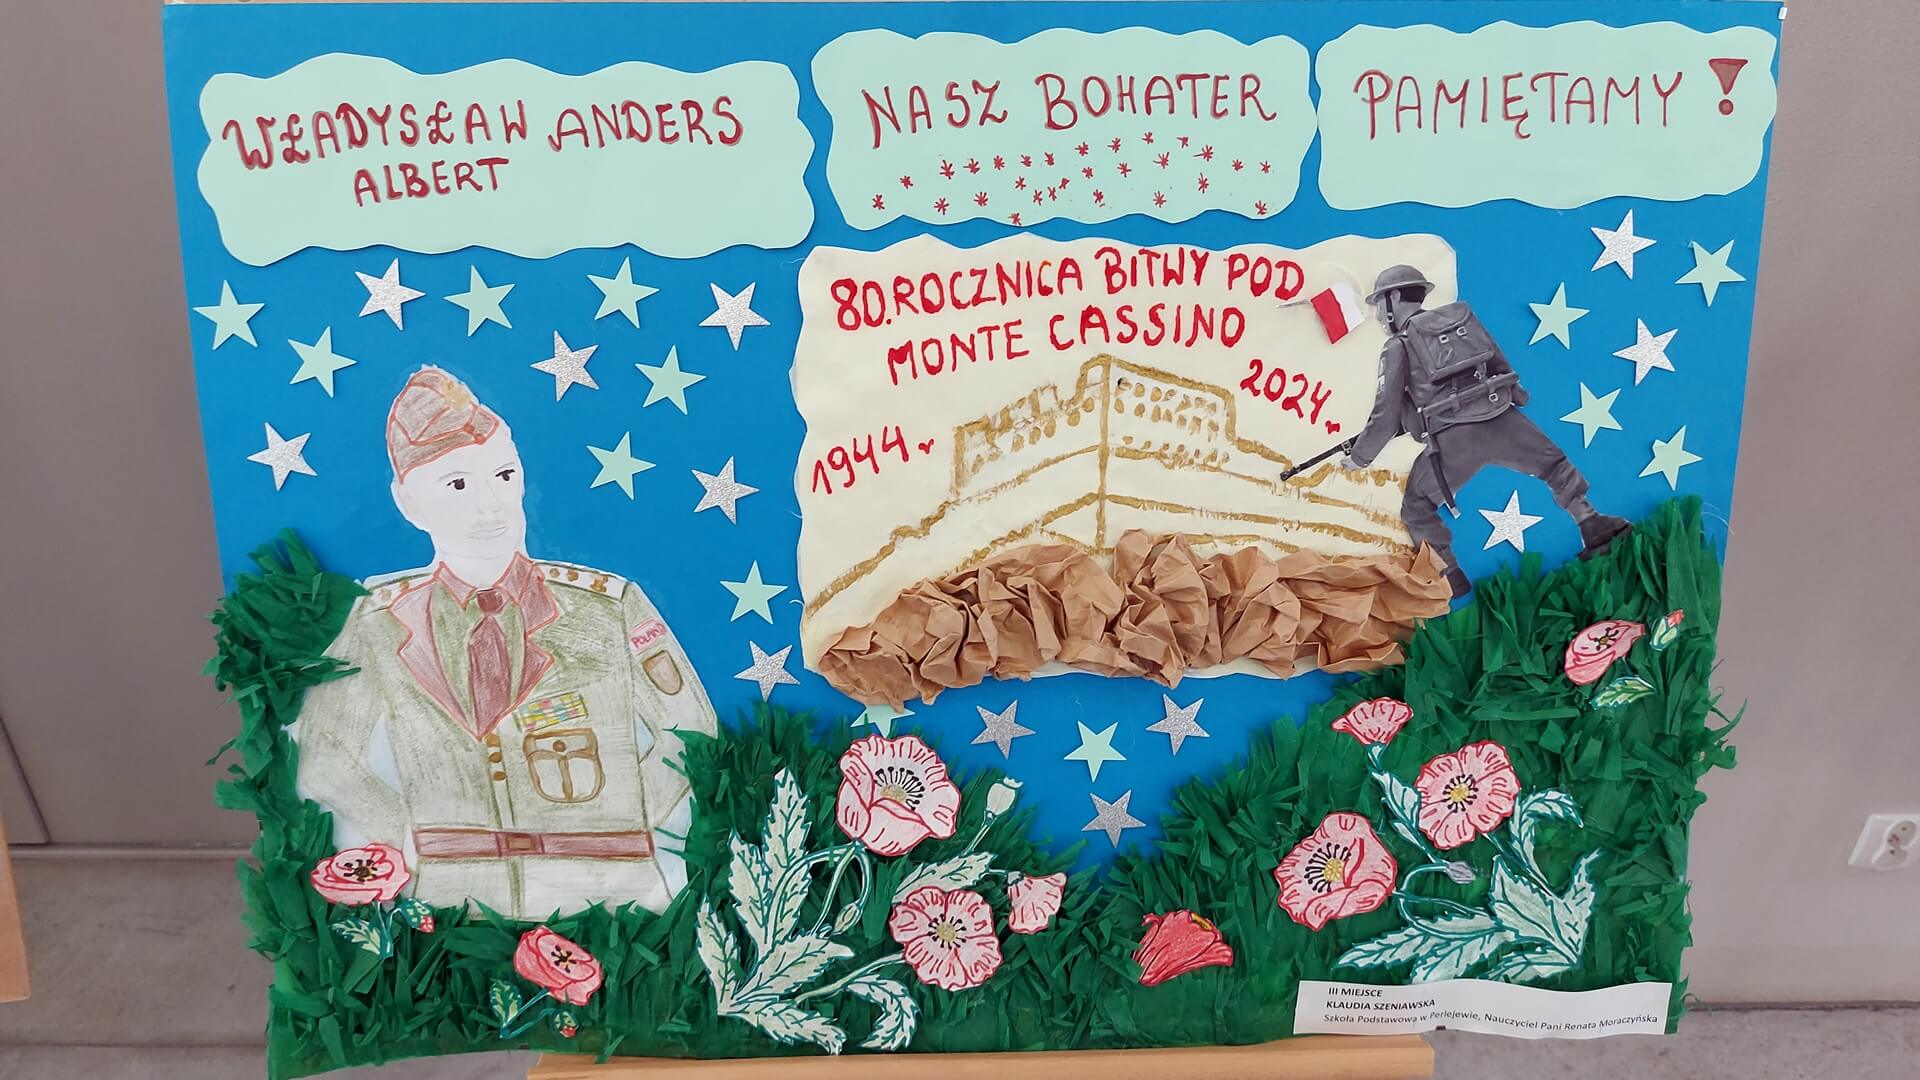 WŁADYSŁAW ANDERS
ALBERT
NASZ BOHATER
PAMIĘTAMY!
80.ROCZNICA BITWY POD
MONTE CASSINO
1944r
2024r
POLAND
III MIEJSCE
KLAUDIA SZENIAWSKA
Szkoła Podstawowa w Perlejewie, Nauczyciel Pani Renata Moraczyńska